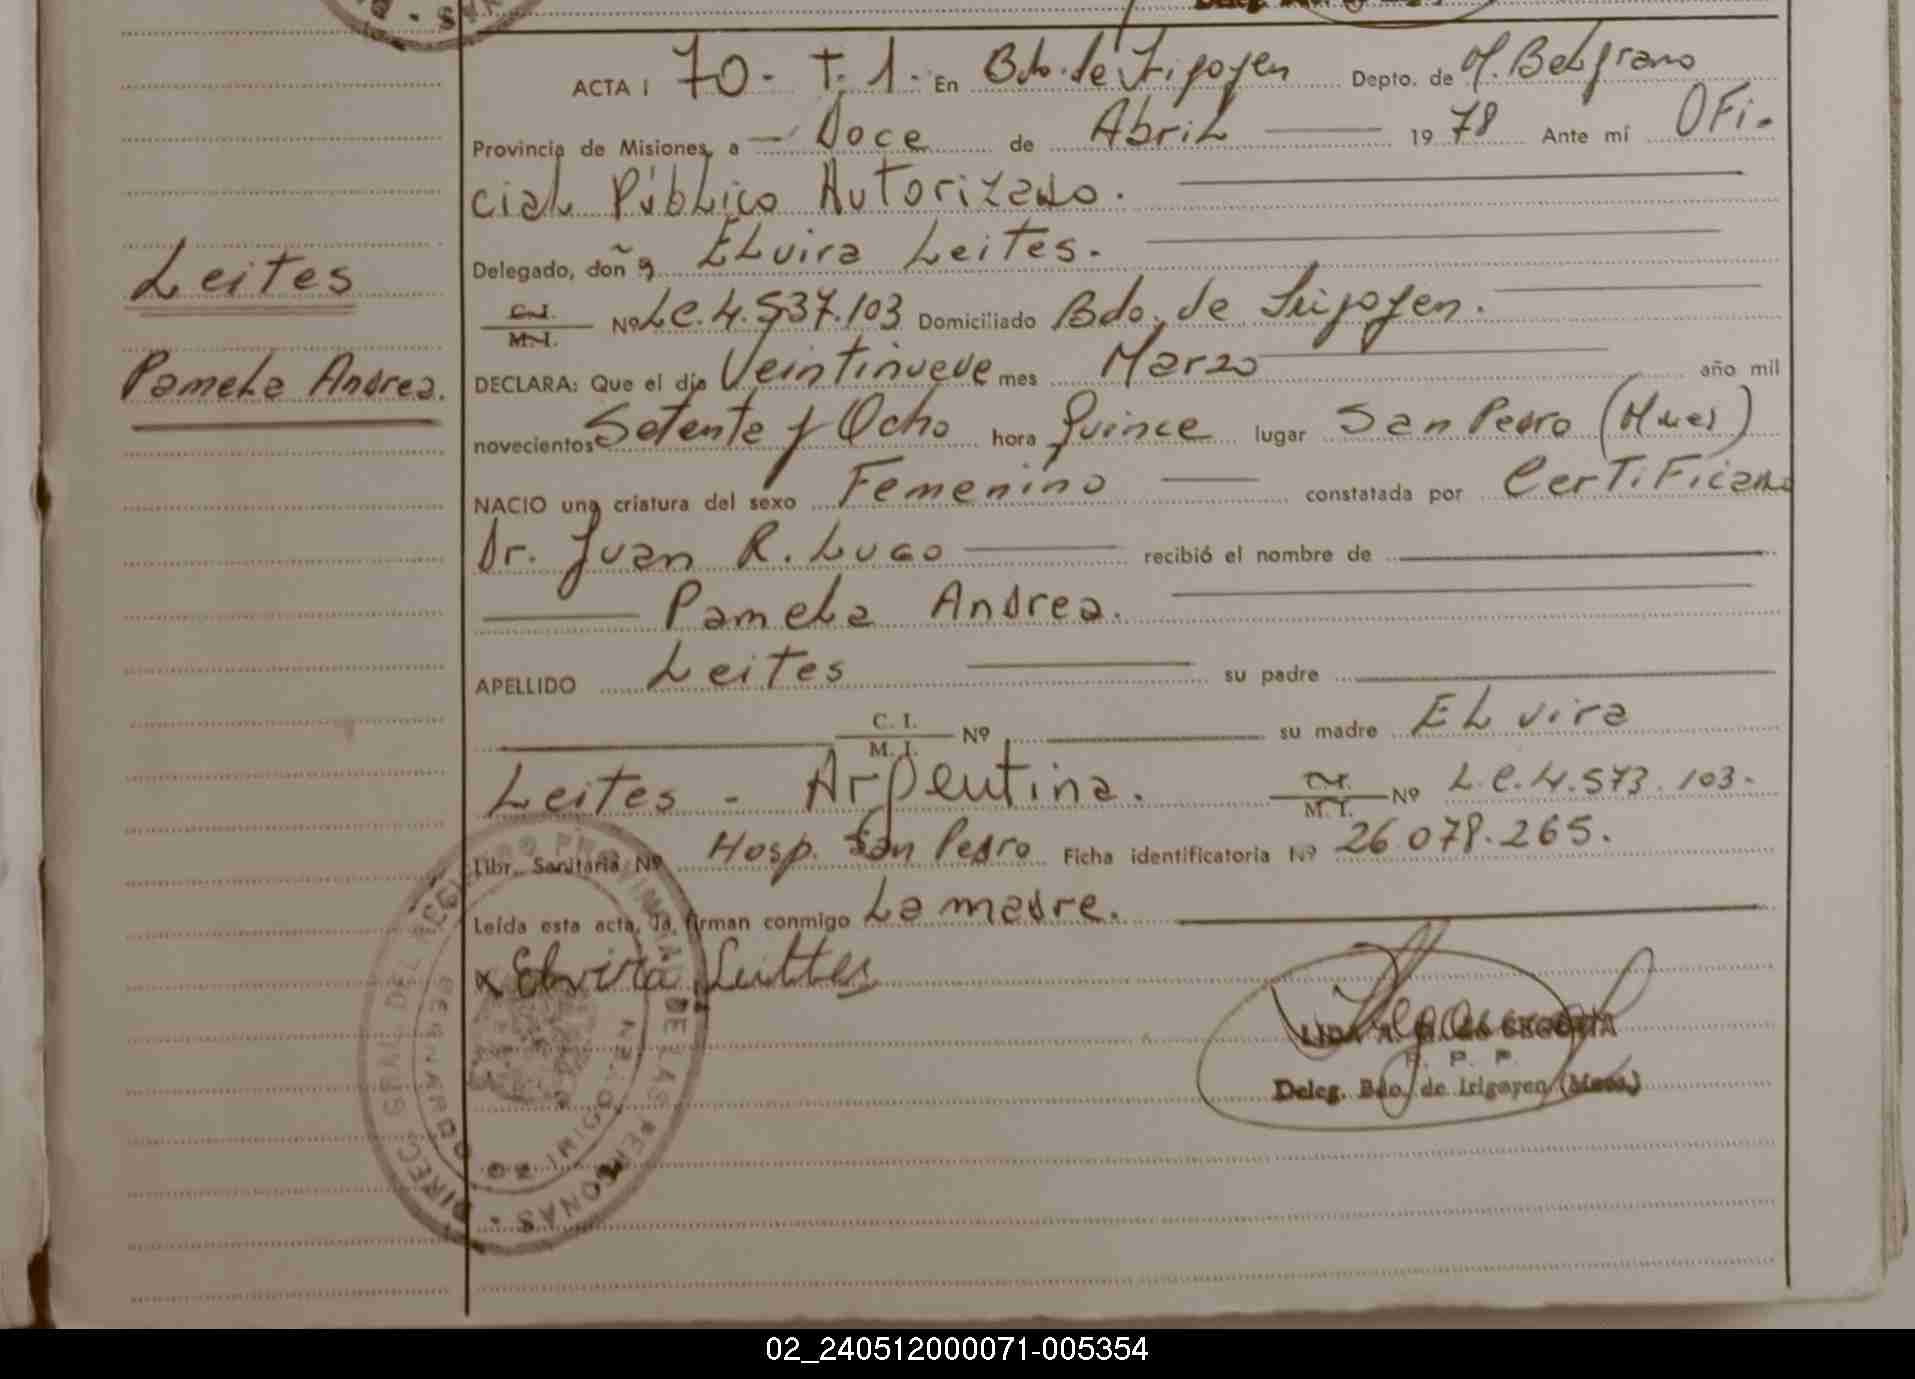 ACTA I 70 - T. 1. En Bdo. de Irigoyen Depto. de M. Belgrano
Provincia de Misiones, a — Doce de Abril — 1978 Ante mí Ofi-
cial Público Autorizado.
Delegado, doña Elvira Leites.
Leites
C.I. M.I. Nº L.C. 4.537.103 Domiciliado Bdo. de Irigoyen.
Pamela Andrea.
DECLARA: Que el día Veintinueve mes Marzo año mil
novecientos Setenta y Ocho hora Quince lugar San Pedro (Mnes)
NACIO una criatura del sexo Femenino constatada por Certificado
Dr. Juan R. Lugo recibió el nombre de
Pamela Andrea.
APELLIDO Leites su padre
C. I. M. I. Nº su madre Elvira
Leites - Argentina. C.I. M.I. Nº L.C. 4.573.103.
Libr. Sanitaria Nº Hosp. San Pedro Ficha identificatoria Nº 26.078.265.
Leída esta acta, la firman conmigo La madre.
x Elvira Leittes
DIREC. GRAL. DEL REGISTRO PROVINCIAL DE LAS PERSONAS
BERNARDO DE IRIGOYEN
LIDA A.
R. P. P.
Deleg. Bdo. de Irigoyen (Mnes.)
02_240512000071-005354